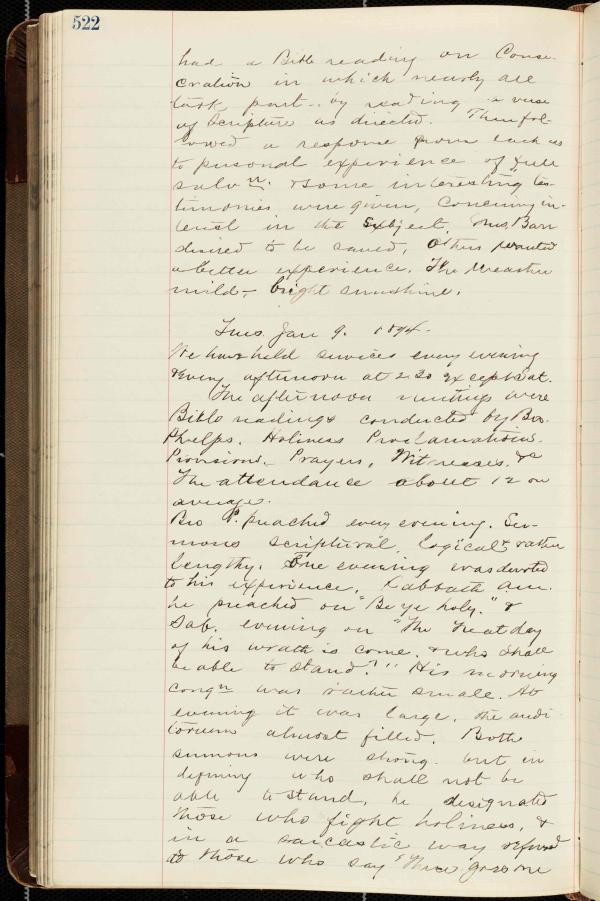 522
had a Bible reading on Conse-
cration in which nearly all
took part - by reading a verse
of Scripture as directed. Then fol-
lowed a response from each as
to personal experience of full
salvn. Some interesting tes-
timonies were given, concerning in-
terest in the subject. Mrs. Barr
desired to be saved, Others wanted
a better experience. The weather
mild - bright sunshine.
Tues. Jan 9. 1894.
We have held services every evening
& every afternoon at 2.30 except Sat.
The afternoon meetings were
Bible readings conducted by Bro.
Phelps. Holiness Proclamations.
Provisions. Prayers. Witnesses. &c
The attendance about 12 on
average.
Bro P. preached every evening. Ser-
mons scriptural, logical & rather
lengthy. One evening was devoted
to his experience. Sabbath a.m.
he preached on "Be ye holy." &
Sab. evening on "The Great day
of his wrath is come. & who shall
be able to stand?" His morning
congn was rather small. At
evening it was large. the audi-
torium almost filled. Both
sermons were strong. but in
defining who shall not be
able to stand, he designated
those who fight holiness, &
in a sarcastic way referred
to those who say